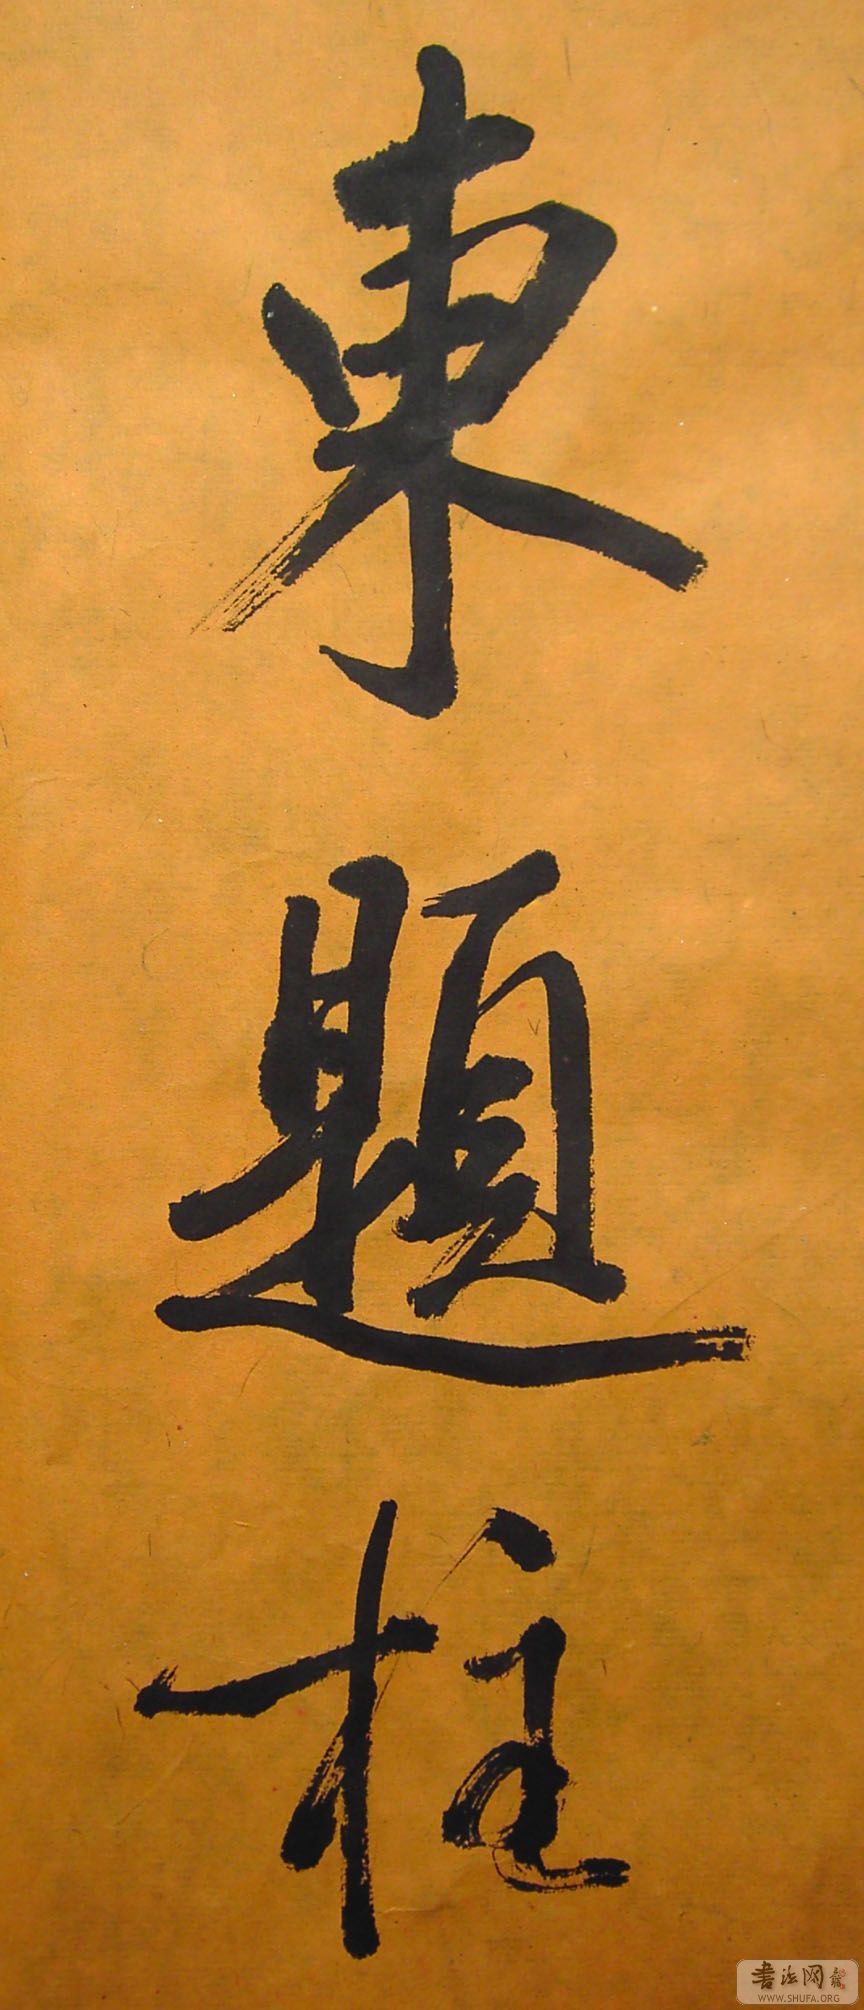 東題柱
書法网
WWW.SHUFA.ORG